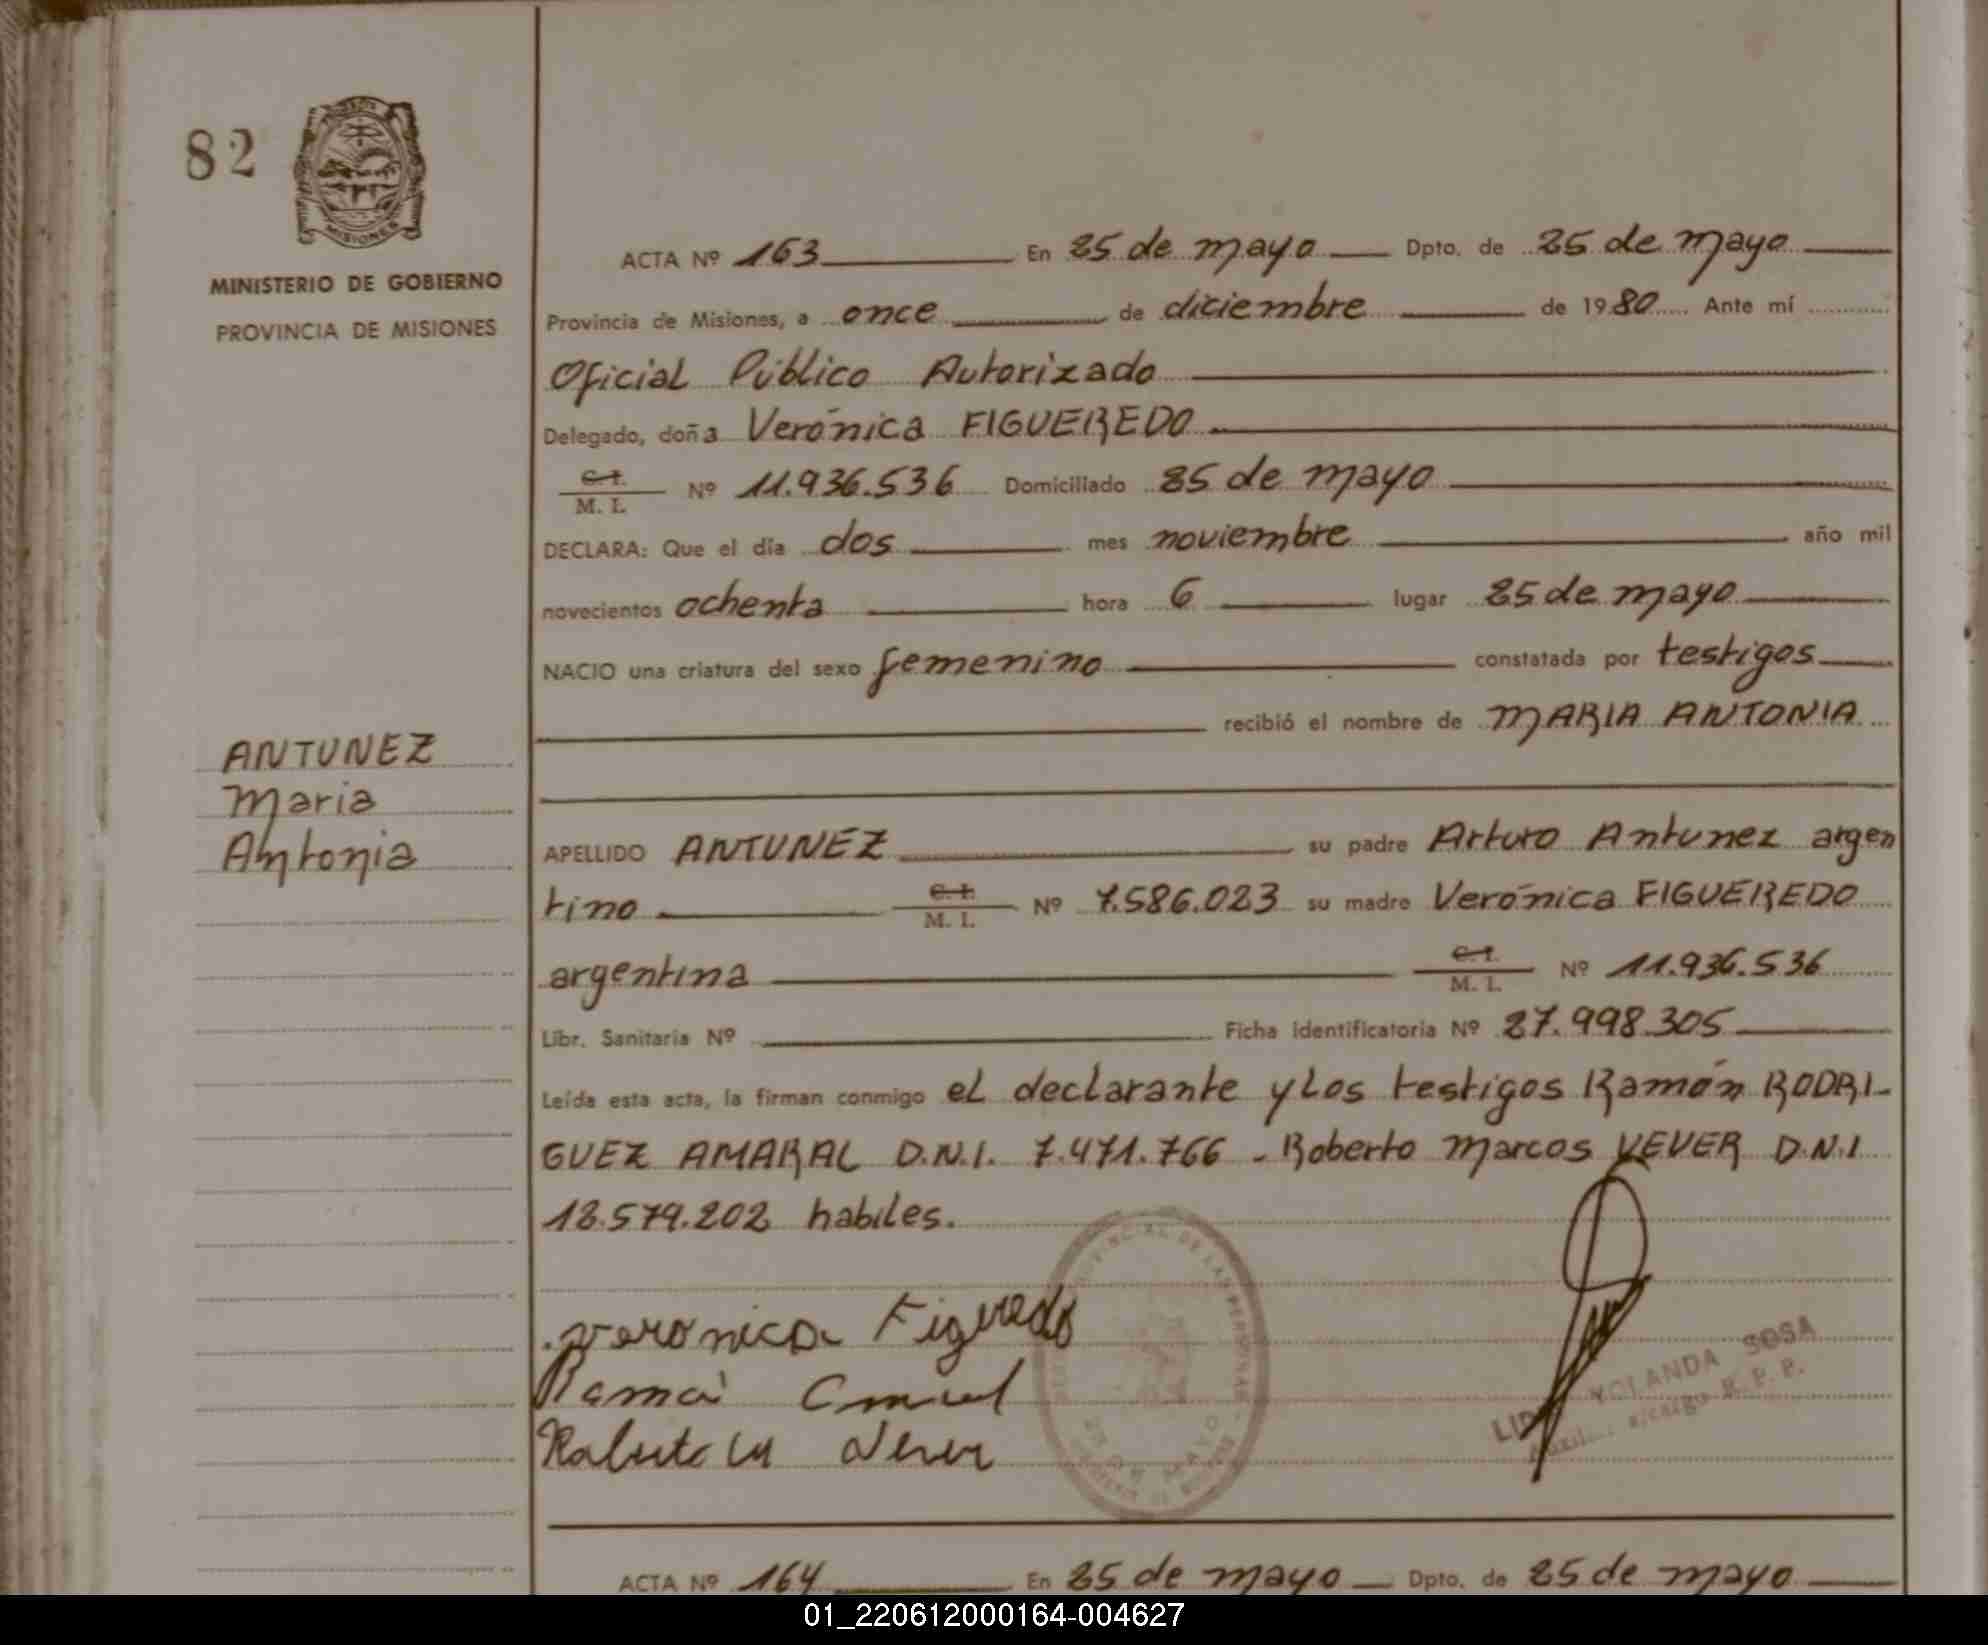 82
MISIONES
MINISTERIO DE GOBIERNO
PROVINCIA DE MISIONES
ACTA Nº 163 En 25 de mayo Dpto. de 25 de mayo
Provincia de Misiones, a once de diciembre de 1980 Ante mí
Oficial Público Autorizado
Delegado, doña Verónica FIGUEREDO
C. I.
M. I. Nº 11.936.536 Domiciliado 25 de mayo
DECLARA: Que el día dos mes noviembre año mil
novecientos ochenta hora 6 lugar 25 de mayo
NACIO una criatura del sexo femenino constatada por testigos
recibió el nombre de MARIA ANTONIA
ANTUNEZ
Maria
Antonia
APELLIDO ANTUNEZ su padre Arturo Antunez argen
tino C. I. M. I. Nº 7.586.023 su madre Verónica FIGUEREDO
argentina C. I. M. I. Nº 11.936.536
Libr. Sanitaria Nº Ficha identificatoria Nº 27.998.305
Leída esta acta, la firman conmigo el declarante y los testigos Ramón RODRI-
GUEZ AMARAL D.N.I. 7.471.766 - Roberto Marcos VEVER D.N.I
18.579.202 habiles.
veronica Figueredo
YOLANDA SOSA
25 DE MAYO
ACTA Nº 164 En 25 de mayo Dpto. de 25 de mayo
01_220612000164-004627